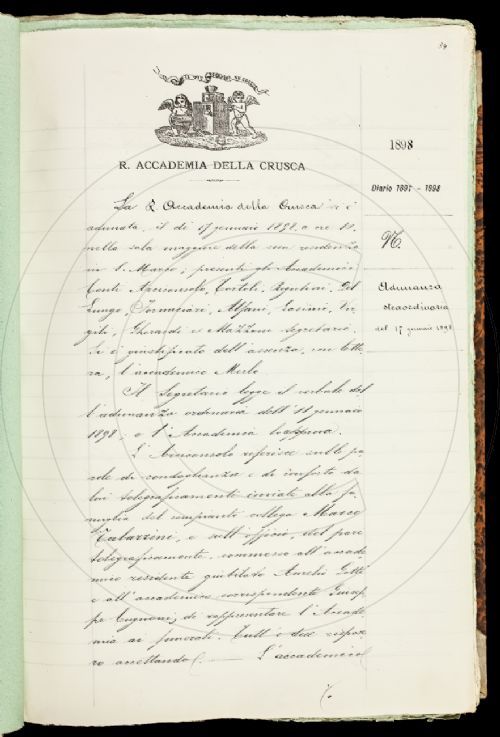 34
R. ACCADEMIA DELLA CRUSCA
1898
Diario 1897 - 1898
VI.
Adunanza
straordinaria
del 17 gennaio 1898
La R. Accademia della Crusca si è
adunata, il dì 17 gennaio 1898, a ore 11,
nella sala maggiore della sua residenza
in S. Marco; presenti gli Accademici
Conti Arciconsolo, Tortoli, Rigutini, Del
Lungo, Tornaciari, Alfani, Vir-
gili, Gherardi e Mazzoni segretario.
Si è giustificato dell'assenza, con lette-
ra, l'accademico Merlo.
Il Segretario legge il verbale del
l'adunanza ordinaria dell'11 gennaio
1898, e l'Accademia l'approva.
L'Arciconsolo riferisce sulle pa-
role di condoglianza e di conforto da
lui telegraficamente inviate alla fa-
miglia del compianto collega Marco
Tabarrini, e sull'officio, del pari
telegraficamente, commesso all'accade-
mico residente Aurelio Gotti
e all'accademico corrispondente Giusep-
pe Cugnoni, di rappresentare l'Accade-
mia ai funerali. Tutt'e due rispose-
ro accettando. — L'accademico